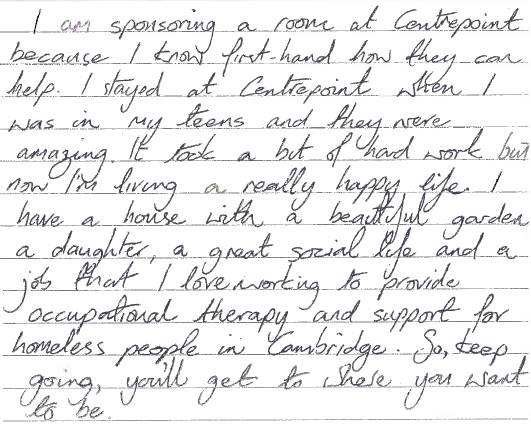 I am sponsoring a room at Centrepoint
because I know first-hand how they can
help. I stayed at Centrepoint when I
was in my teens and they were
amazing. It took a bit of hard work but
now I'm living a really happy life. I
have a house with a beautiful garden
a daughter, a great social life and a
job that I love working to provide
occupational therapy and support for
homeless people in Cambridge. So, keep
going, you'll get to where you want
to be.